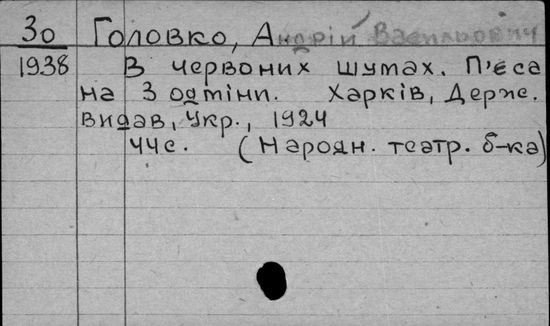 30 Головко, Андрій Васильович
1938 В червоних шумах. П'єса
на 3 одміни. Харків, Держ.
видав, Укр., 1924
44с. (Народн. театр. б-ка)